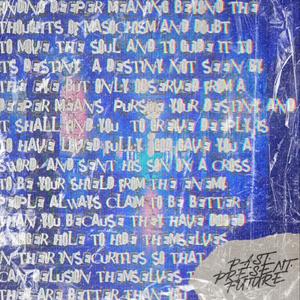 FINDING DEEPER MEANING BEYOND THE
THOUGHTS OF MASOCHISM AND DOUBT
TO MOVE THE SOUL AND TO GUIDE IT TO
ITS DESTINY. A DESTINY NOT SEEN BY
THE EYE BUT ONLY OBSERVED FROM A
DEEPER MEANS. PURSUE YOUR DESTINY AND
IT SHALL FIND YOU. TO GRIEVE DEEPLY IS
TO HAVE LIVED FULLY. GOD GAVE YOU A
SWORD AND SENT HIS SON ON A CROSS
TO BE YOUR SHIELD FROM THE ENEMY.
PEOPLE ALWAYS CLAIM TO BE BETTER
THAN YOU BECAUSE THEY HAVE
HOLE TO HIDE THEMSELVES
IN THEIR INSECURITIES SO THAT
CAN ELUSION THEMSELVES
THEY ARE BETTER THAN
PAST
PRESENT
FUTURE